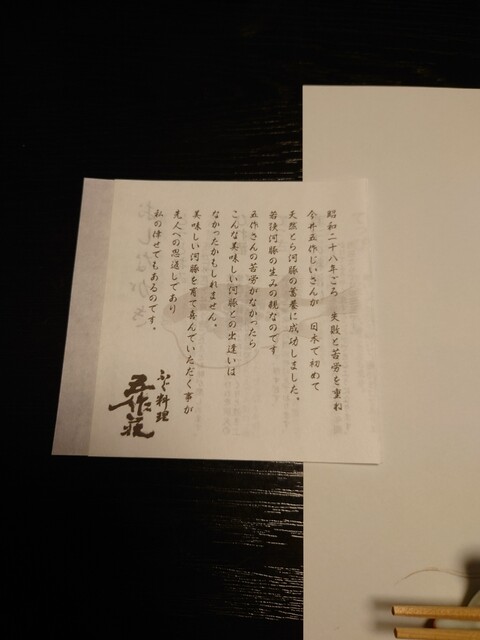 昭和二十八年ごろ　失敗と苦労を重ね
今井五作じいさんが　日本で初めて
天然とら河豚の蓄養に成功しました。
若狭河豚の生みの親なのです
五作さんの苦労がなかったら
こんな美味しい河豚との出逢いは
なかったかもしれません。
美味しい河豚を育て喜んでいただく事が
先人への恩返しであり
私の倖せでもあるのです。
ふぐ料理
五作荘
おしながき